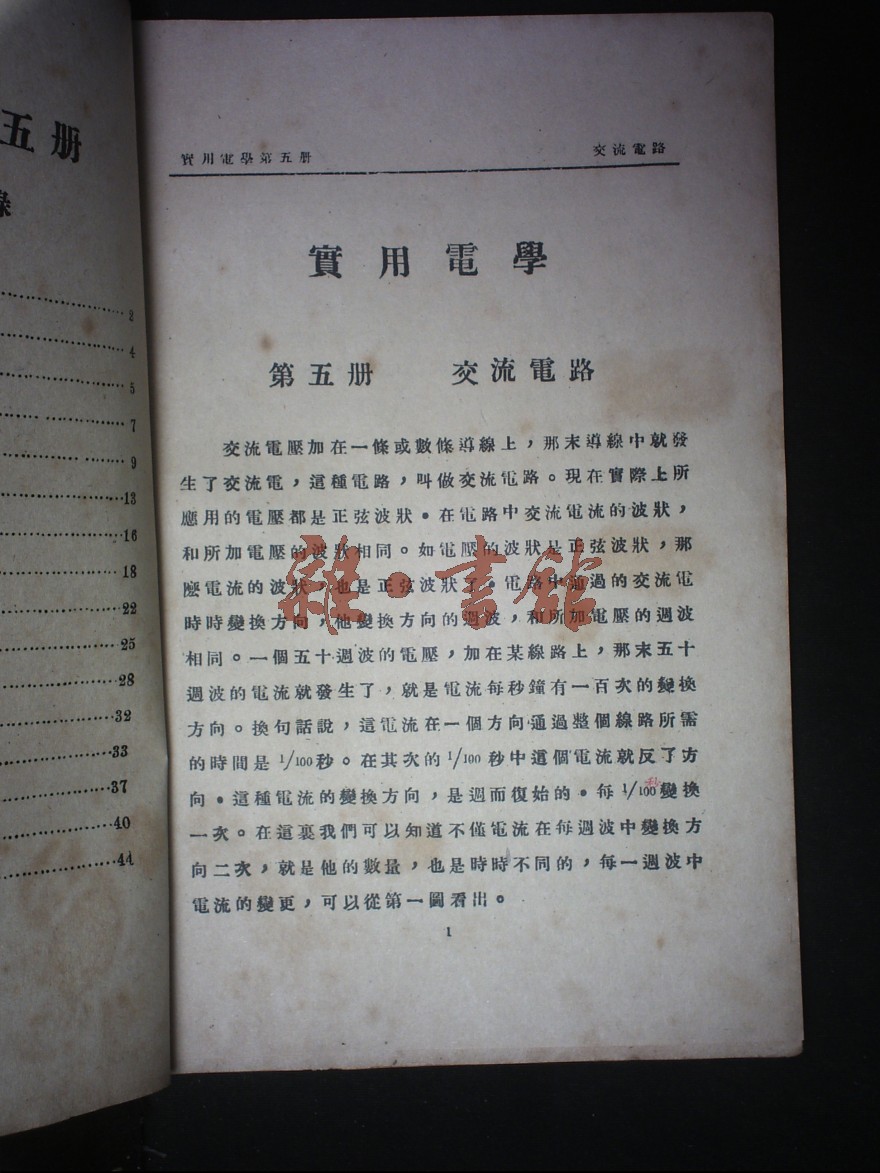 五册
錄
2
4
5
7
9
13
16
18
22
25
28
32
33
37
40
44
實用電學第五册 交流電路
實用電學
第五册 交流電路
交流電壓加在一條或數條導線上，那末導線中就發
生了交流電，這種電路，叫做交流電路。現在實際上所
應用的電壓都是正弦波狀。在電路中交流電流的波狀，
和所加電壓的波狀相同。如電壓的波狀是正弦波狀，那
麼電流的波狀，也是正弦波狀了。電路中通過的交流電
時時變換方向，他變換方向的週波，和所加電壓的週波
相同。一個五十週波的電壓，加在某線路上，那末五十
週波的電流就發生了，就是電流每秒鐘有一百次的變換
方向。換句話說，這電流在一個方向通過整個線路所需
的時間是 1/100秒。在其次的 1/100 秒中這個電流就反了方
向。這種電流的變換方向，是週而復始的。每 1/100秒變換
一次。在這裏我們可以知道不僅電流在每週波中變換方
向二次，就是他的數量，也是時時不同的，每一週波中
電流的變更，可以從第一圖看出。
1
雜·書館